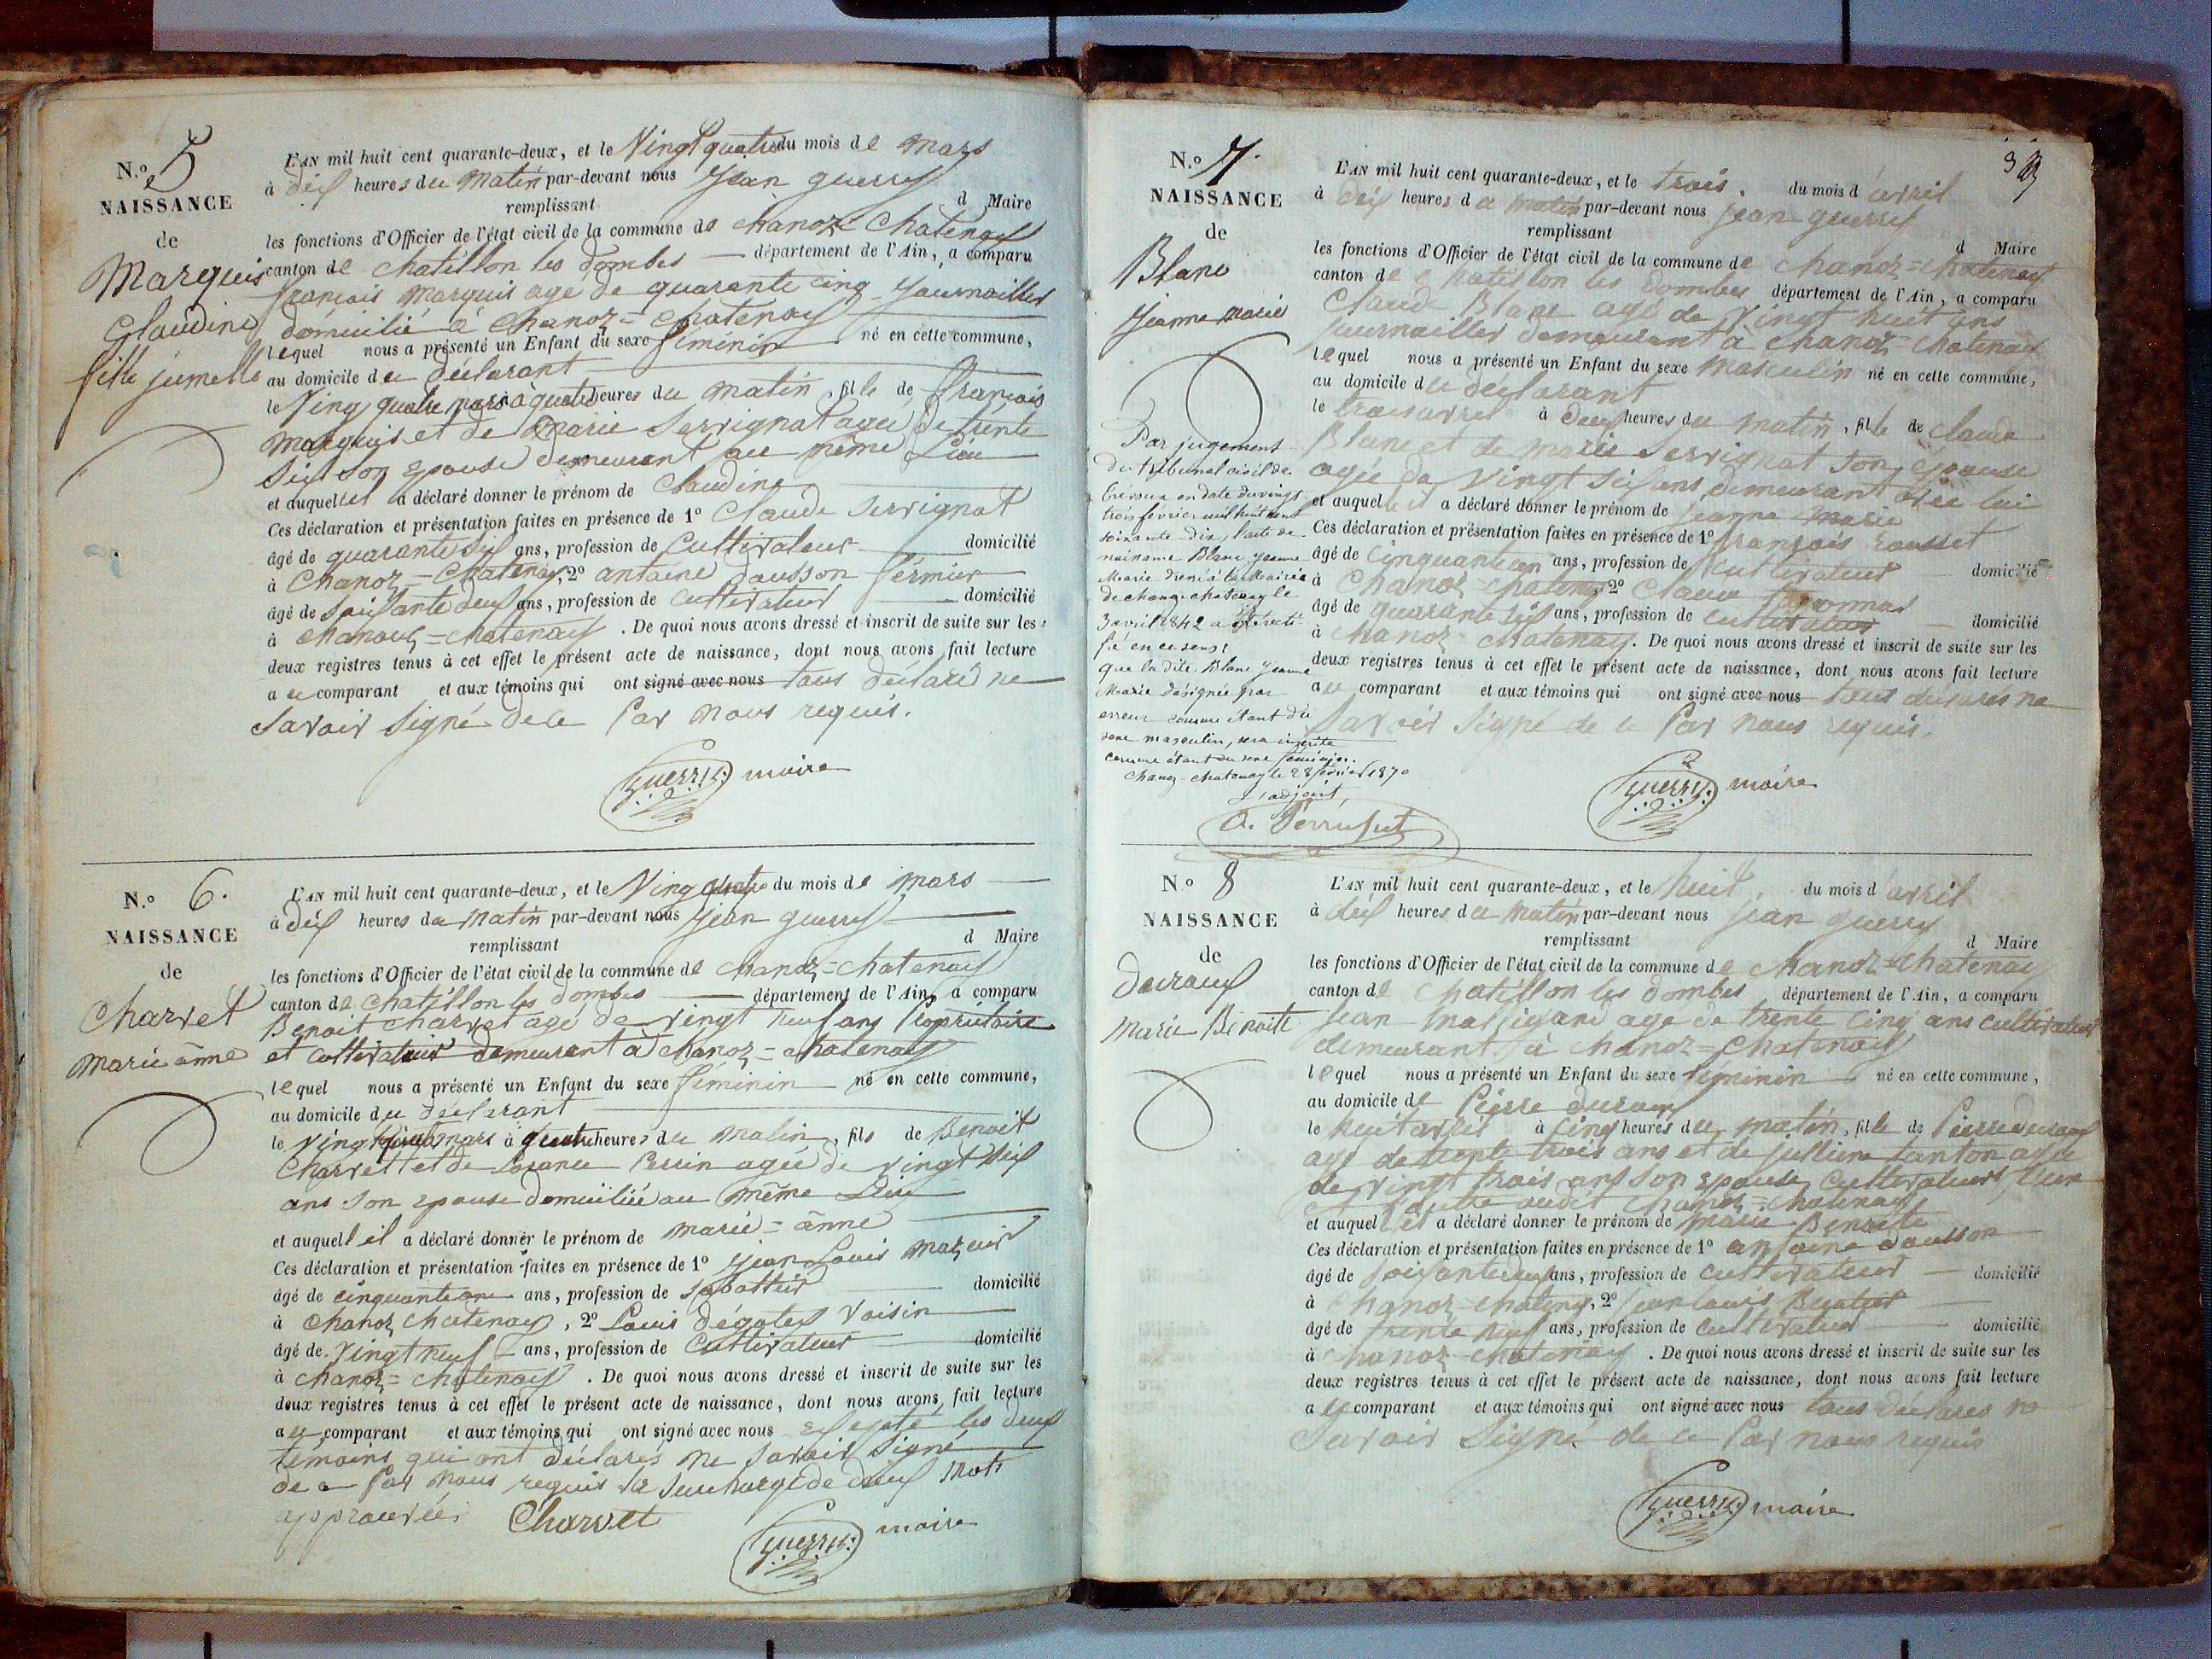 N.o 5
NAISSANCE
de
Marquis
Claudine
fille jumelle
L'AN mil huit cent quarante-deux, et le Vingt quatre du mois de mars
à dix heures du matin par-devant nous Jean guerry
remplissant d Maire
les fonctions d'Officier de l'état civil de la commune de chanoz Chatenay
canton de chatillon les dombes département de l'Ain, a comparu
francois marquis agé de quarante cinq Journailler
domicilié à Chanoz=chatenay
lequel nous a présenté un Enfant du sexe féminin né en cette commune,
au domicile du déclarant
le Vingt quatre mars à quatre heures du matin, fille de francois
marquis et de marie Servignat agée de trente
six son epouse demeurant au même Lieu
et auquel il a déclaré donner le prénom de Claudine
Ces déclaration et présentation faites en présence de 1º Claude Servignat
âgé de quarante six ans, profession de Cultivateur domicilié
à Chanoz=Chatenay, 2º antoine dausson fermier
âgé de soixante deux ans, profession de cultivateur domicilié
à chanouz=chatenay. De quoi nous avons dressé et inscrit de suite sur les
deux registres tenus à cet effet le présent acte de naissance, dont nous avons fait lecture
au comparant et aux témoins qui ont signé avec nous tous déclaré ne
savoir signé de ce Par nous requis.
Guerry maire
N.o 6.
NAISSANCE
de
Charvet
marie anne
L'AN mil huit cent quarante-deux, et le Ving quatre du mois de mars
à dix heures du matin par-devant nous Jean guerry
remplissant d Maire
les fonctions d'Officier de l'état civil de la commune de chanoz=chatenay
canton de chatillon les dombes département de l'Ain, a comparu
Benoit charvet agé de vingt neuf ans Propriétaire
et cultivateur demeurant a chanoz=chatenay
lequel nous a présenté un Enfant du sexe féminin né en cette commune,
au domicile du déclarant
le Vingt mars à quatre heures du matin, fils de Benoit
Charvet et de Perrin agée de vingt
ans son epouse domiciliée au même Lieu
et auquell il a déclaré donner le prénom de marie=anne
Ces déclaration et présentation faites en présence de 1º Jean Louis
âgé de cinquante ans, profession de sabottier domicilié
à chanoz chatenay, 2º Louis dégotex Voisin
âgé de Vingt neuf ans, profession de Cultivateur domicilié
à chanoz=chatenay. De quoi nous avons dressé et inscrit de suite sur les
deux registres tenus à cet effet le présent acte de naissance, dont nous avons fait lecture
au comparant et aux témoins qui ont signé avec nous les deux
témoins qui ont déclarés ne savoir signé
de ce Par nous requis la surcharge de deux mots
approuvée. Charvet
Guerry maire
N.o 7.
NAISSANCE
de
Blanc
Jeanne marie
Par jugement
du tribunal civil de
Trévoux en date du vingt
trois février mil huit cent
soixante dix, l'acte de
naissance Blanc Jeanne
Marie dressé à la Mairie
de chanoz-chatenay le
3 avril 1842 a été recti
fié en ce sens:
que la dite Blanc Jeanne
Marie désignée par
erreur comme étant du
sexe masculin, sera inscrite
comme étant du sexe féminin.
Chanoz-chatenay le 28 février 1870
L'adjoint,
L'AN mil huit cent quarante-deux, et le trois. du mois d'avril
à dix heures du matin par-devant nous jean guerry
remplissant d Maire
les fonctions d'Officier de l'état civil de la commune de chanoz=chatenay
canton de chatillon les dombes département de l'Ain, a comparu
Claude Blanc agé de Vingt huit ans
journailler demeurant à chanoz=chatenay
lequel nous a présenté un Enfant du sexe Masculin né en cette commune,
au domicile du déclarant
le trois avril à deux heures du matin, fille de claude
Blanc et de marie Servignat son épouse
agée de Vingt six ans demeurant avec lui
et auquel il a déclaré donner le prénom de Jeanne marie
Ces déclaration et présentation faites en présence de 1º françois rousset
âgé de cinquante un ans, profession de cultivateur domicilié
à Chanoz chatenay, 2º Claude
âgé de quarante six ans, profession de cultivateur domicilié
à chanoz=chatenay. De quoi nous avons dressé et inscrit de suite sur les
deux registres tenus à cet effet le présent acte de naissance, dont nous avons fait lecture
au comparant et aux témoins qui ont signé avec nous tous déclarés ne
savoir signé de ce Par nous requis.
Guerry maire
No 8
NAISSANCE
de
Marie Benoite
L'AN mil huit cent quarante-deux, et le huit. du mois d'avril
à dix heures du matin par-devant nous jean guerry
remplissant d Maire
les fonctions d'Officier de l'état civil de la commune de chanoz=chatenay
canton de chatillon les dombes département de l'Ain, a comparu
jean agé de trente cinq ans cultivateur
demeurant à chanoz=chatenay
lequel nous a présenté un Enfant du sexe féminin né en cette commune,
au domicile de Pierre
le huit avril à cinq heures du matin, fille de Pierre
agé de trente trois ans et de jullienne tanton agée
de vingt trois ans son epouse cultivateurs
audit chanoz=chatenay
et auquel il a déclaré donner le prénom de marie Benoite
Ces déclaration et présentation faites en présence de 1º antoine dausson
âgé de soixante deux ans, profession de cultivateur domicilié
à chanoz-chatenay, 2º jean louis
âgé de trente neuf ans, profession de cultivateur domicilié
à chanoz chatenay. De quoi nous avons dressé et inscrit de suite sur les
deux registres tenus à cet effet le présent acte de naissance, dont nous avons fait lecture
au comparant et aux témoins qui ont signé avec nous tous déclarés ne
savoir signé de ce Par nous requis
Guerry maire